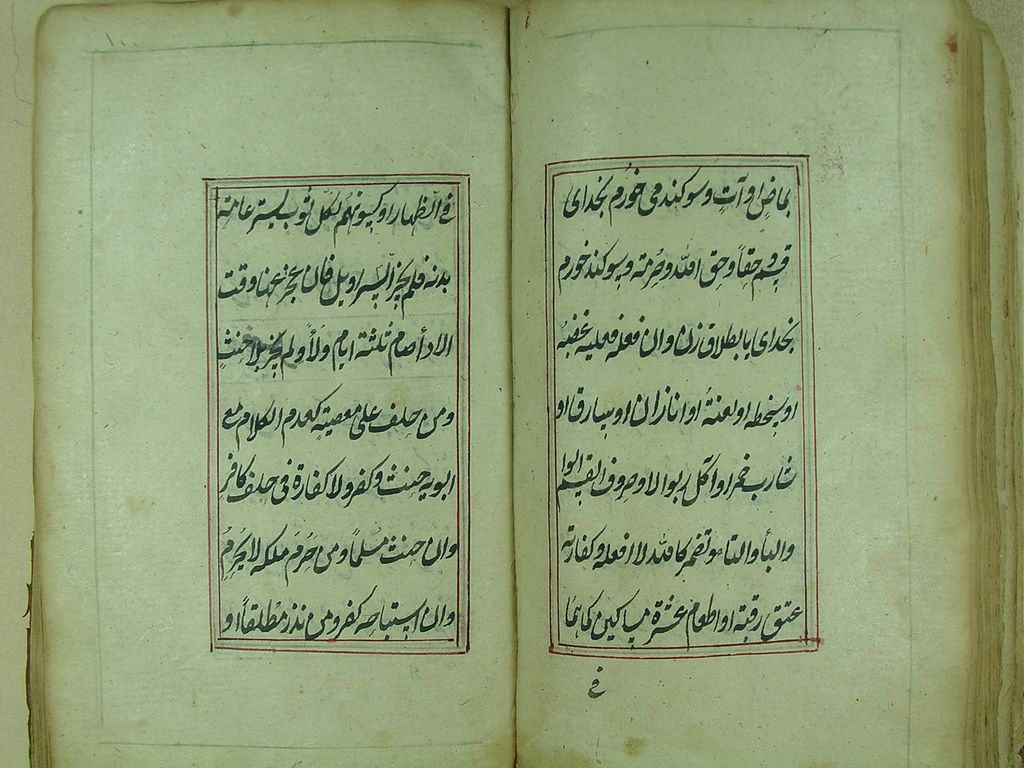 بماضٍ او آتٍ و سوكند مى خورم بخداى
قسم حقاً وحق الله وحرمته و سوكند خورم
بخداى يا بطلاق زن وان فعله فعليه غضبه
او سخطه او لعنة او انا زان او سارق او
شارب خمر او آكل ربوا لا وحروف القسم الواو
والبأ والتا وتضمر كالله لا افعله وكفارته
عتق رقبة او اطعام عشرة مساكين كما هما
فى
فى الظهار او كسوتهم لكل ثوب يستر عامة
بدنه فلم يجز السراويل فان عجز عنها وقت
الاداء صام ثلثة ايام ولاء ولم يجز بلا حنث
ومن حلف على معصية كعدم الكلام مع
ابويه حنث وكفر ولا كفارة فى حلف كافر
وان حنث مسلماً ومن حرم ملكه لا يحرم
وان استباحه كفر ومن نذر مطلقاً او